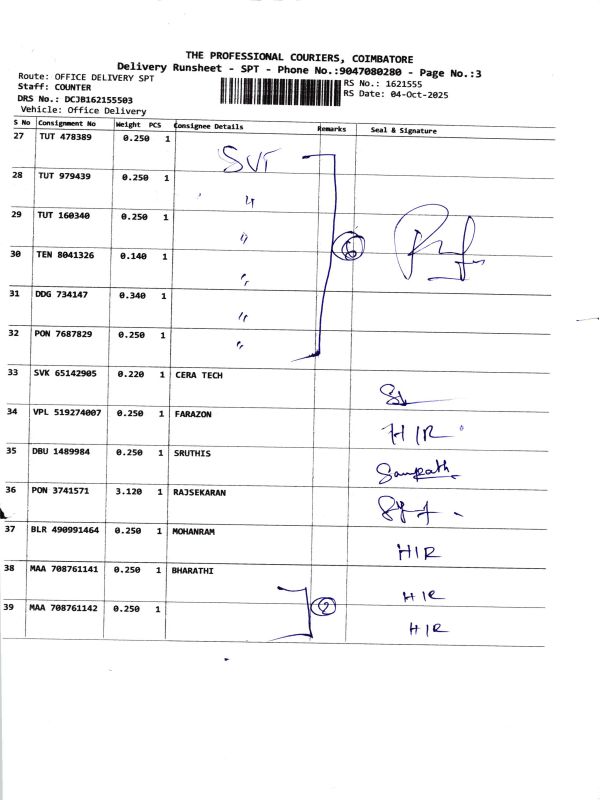 THE PROFESSIONAL COURIERS, COIMBATORE
Delivery Runsheet - SPT - Phone No.:9047080280 - Page No.:3
Route: OFFICE DELIVERY SPT
RS No.: 1621555
Staff: COUNTER
RS Date: 04-Oct-2025
DRS No.: DCJB162155503
Vehicle: Office Delivery
S No Consignment No Weight PCS Consignee Details Remarks Seal & Signature
27 TUT 478389 0.250 1 SVT
28 TUT 979439 0.250 1 "
29 TUT 160340 0.250 1 "
30 TEN 8041326 0.140 1 " 6
31 DDG 734147 0.340 1 "
32 PON 7687829 0.250 1 "
33 SVK 65142905 0.220 1 CERA TECH
34 VPL 519274007 0.250 1 FARAZON HIR
35 DBU 1489984 0.250 1 SRUTHIS Sampath
36 PON 3741571 3.120 1 RAJSEKARAN
37 BLR 490991464 0.250 1 MOHANRAM HIR
38 MAA 708761141 0.250 1 BHARATHI HIR
39 MAA 708761142 0.250 1 2 HIR